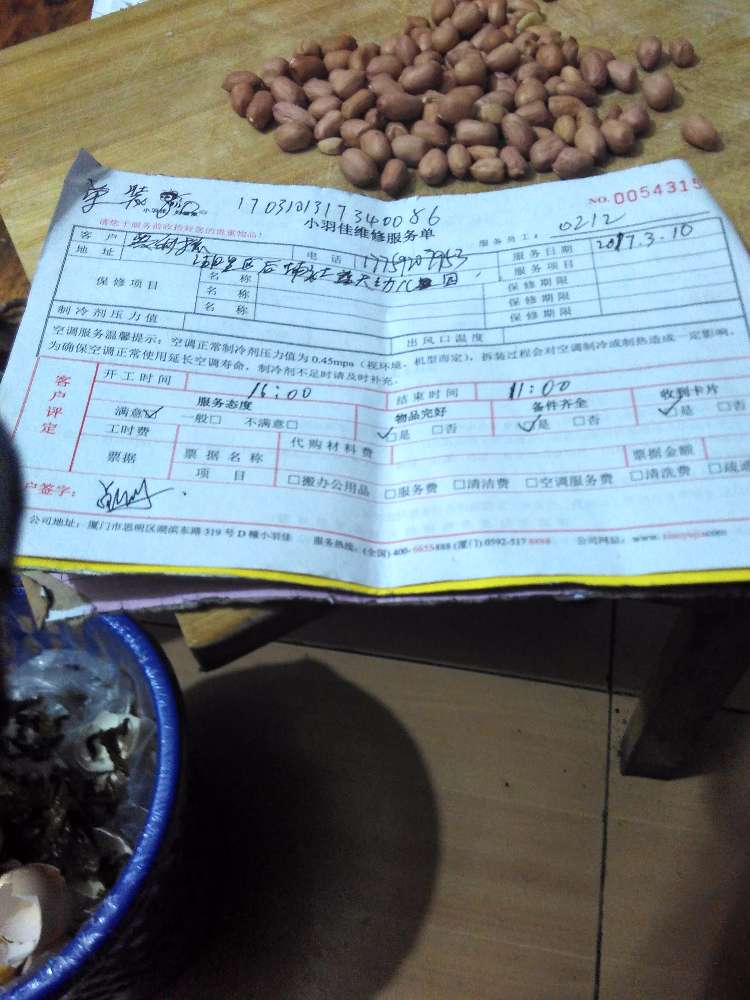 17031013173400 86
小羽佳维修服务单 NO.0054315
请您于服务前收拾好您的贵重物品! 服务员工: 0212
客户 电话 17759207953 服务日期 2017.3.10
地址 服务项目
保修项目 名称 保修期限
名称 保修期限
名称 保修期限
制冷剂压力值 出风口温度
空调服务温馨提示:空调正常制冷剂压力值为0.45mpa(视环境、机型而定),拆装过程会对空调制冷或制热造成一定影响,
为确保空调正常使用延长空调寿命,制冷剂不足时请及时补充.
客户评定
开工时间 16:00 结束时间 11:00
服务态度 物品完好 备件齐全 收到卡片
满意☑ 一般□ 不满意□ ☑是 □否 ☑是 □否 ☑是 □否
工时费 代购材料费
票据 票据名称 票据金额
项目 □搬办公用品 □服务费 □清洁费 □空调服务费 □清洗费 □疏通
户签字:
公司地址:厦门市思明区湖滨东路319号D幢小羽佳 服务热线:(全国)400-6655888(厦门)0592-5178888 公司网站:www.xiaoyujia.com